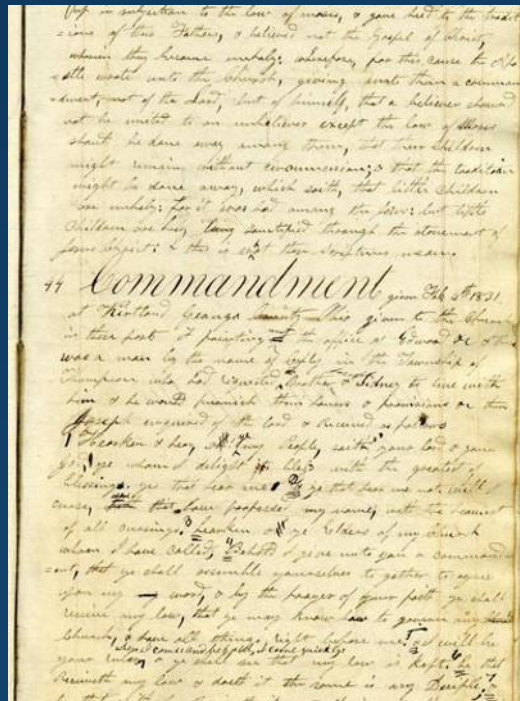 up in subjection to the law of moses, & gave heed to the tradit
=ions of the Fathers, & believed not the Gospel of Christ,
wherein they became unholy: wherefore, for this cause the Apo
=stle wrote unto the church, giving unto them a comman
=dment, not of the Lord, but of himself, that a believer should
not be united to an unbeliever except the law of Moses
should be done away among them, that their children
might remain without circumcision; & that the tradition
might be done away, which saith, that little children
are unholy: for it was had among the Jews: but little
children are holy, being sanctified through the atonement of
Jesus Christ: & this is what the scriptures mean.
44 Commandment given Feb. 4th 1831.
at Kirtland Geauga County Ohio given to the Church
in these
was a man by the name of in the Township of
Thompson who had requested Brother & Sidney to live with
him & he would furnish them houses & provisions &c then
Joseph enquired of the lord & Received as follows
1 Hearken & hear, O ye my People, saith your lord & your
god, ye whom I delight to bless with the greatest of
blessings, ye that hear me: & 2 ye that hear me not will I
curse, that have professed my name, with the heaviest
of all cursings. 3 hearken O ye Elders of my Church
whom I have called, 4 Behold I give unto you a command
=ent, that ye shall assemble yourselves to gether to agree
upon my word, & by the prayer of your faith ye shall
receive my law, that ye may know how to govern my
Church, & have all things right before me. 5 & I will be
your ruler when I come and behold, I come quickly: & ye shall see that my law is kept. 6 he that
receiveth my law & doeth it the same is my Disciple, & 7